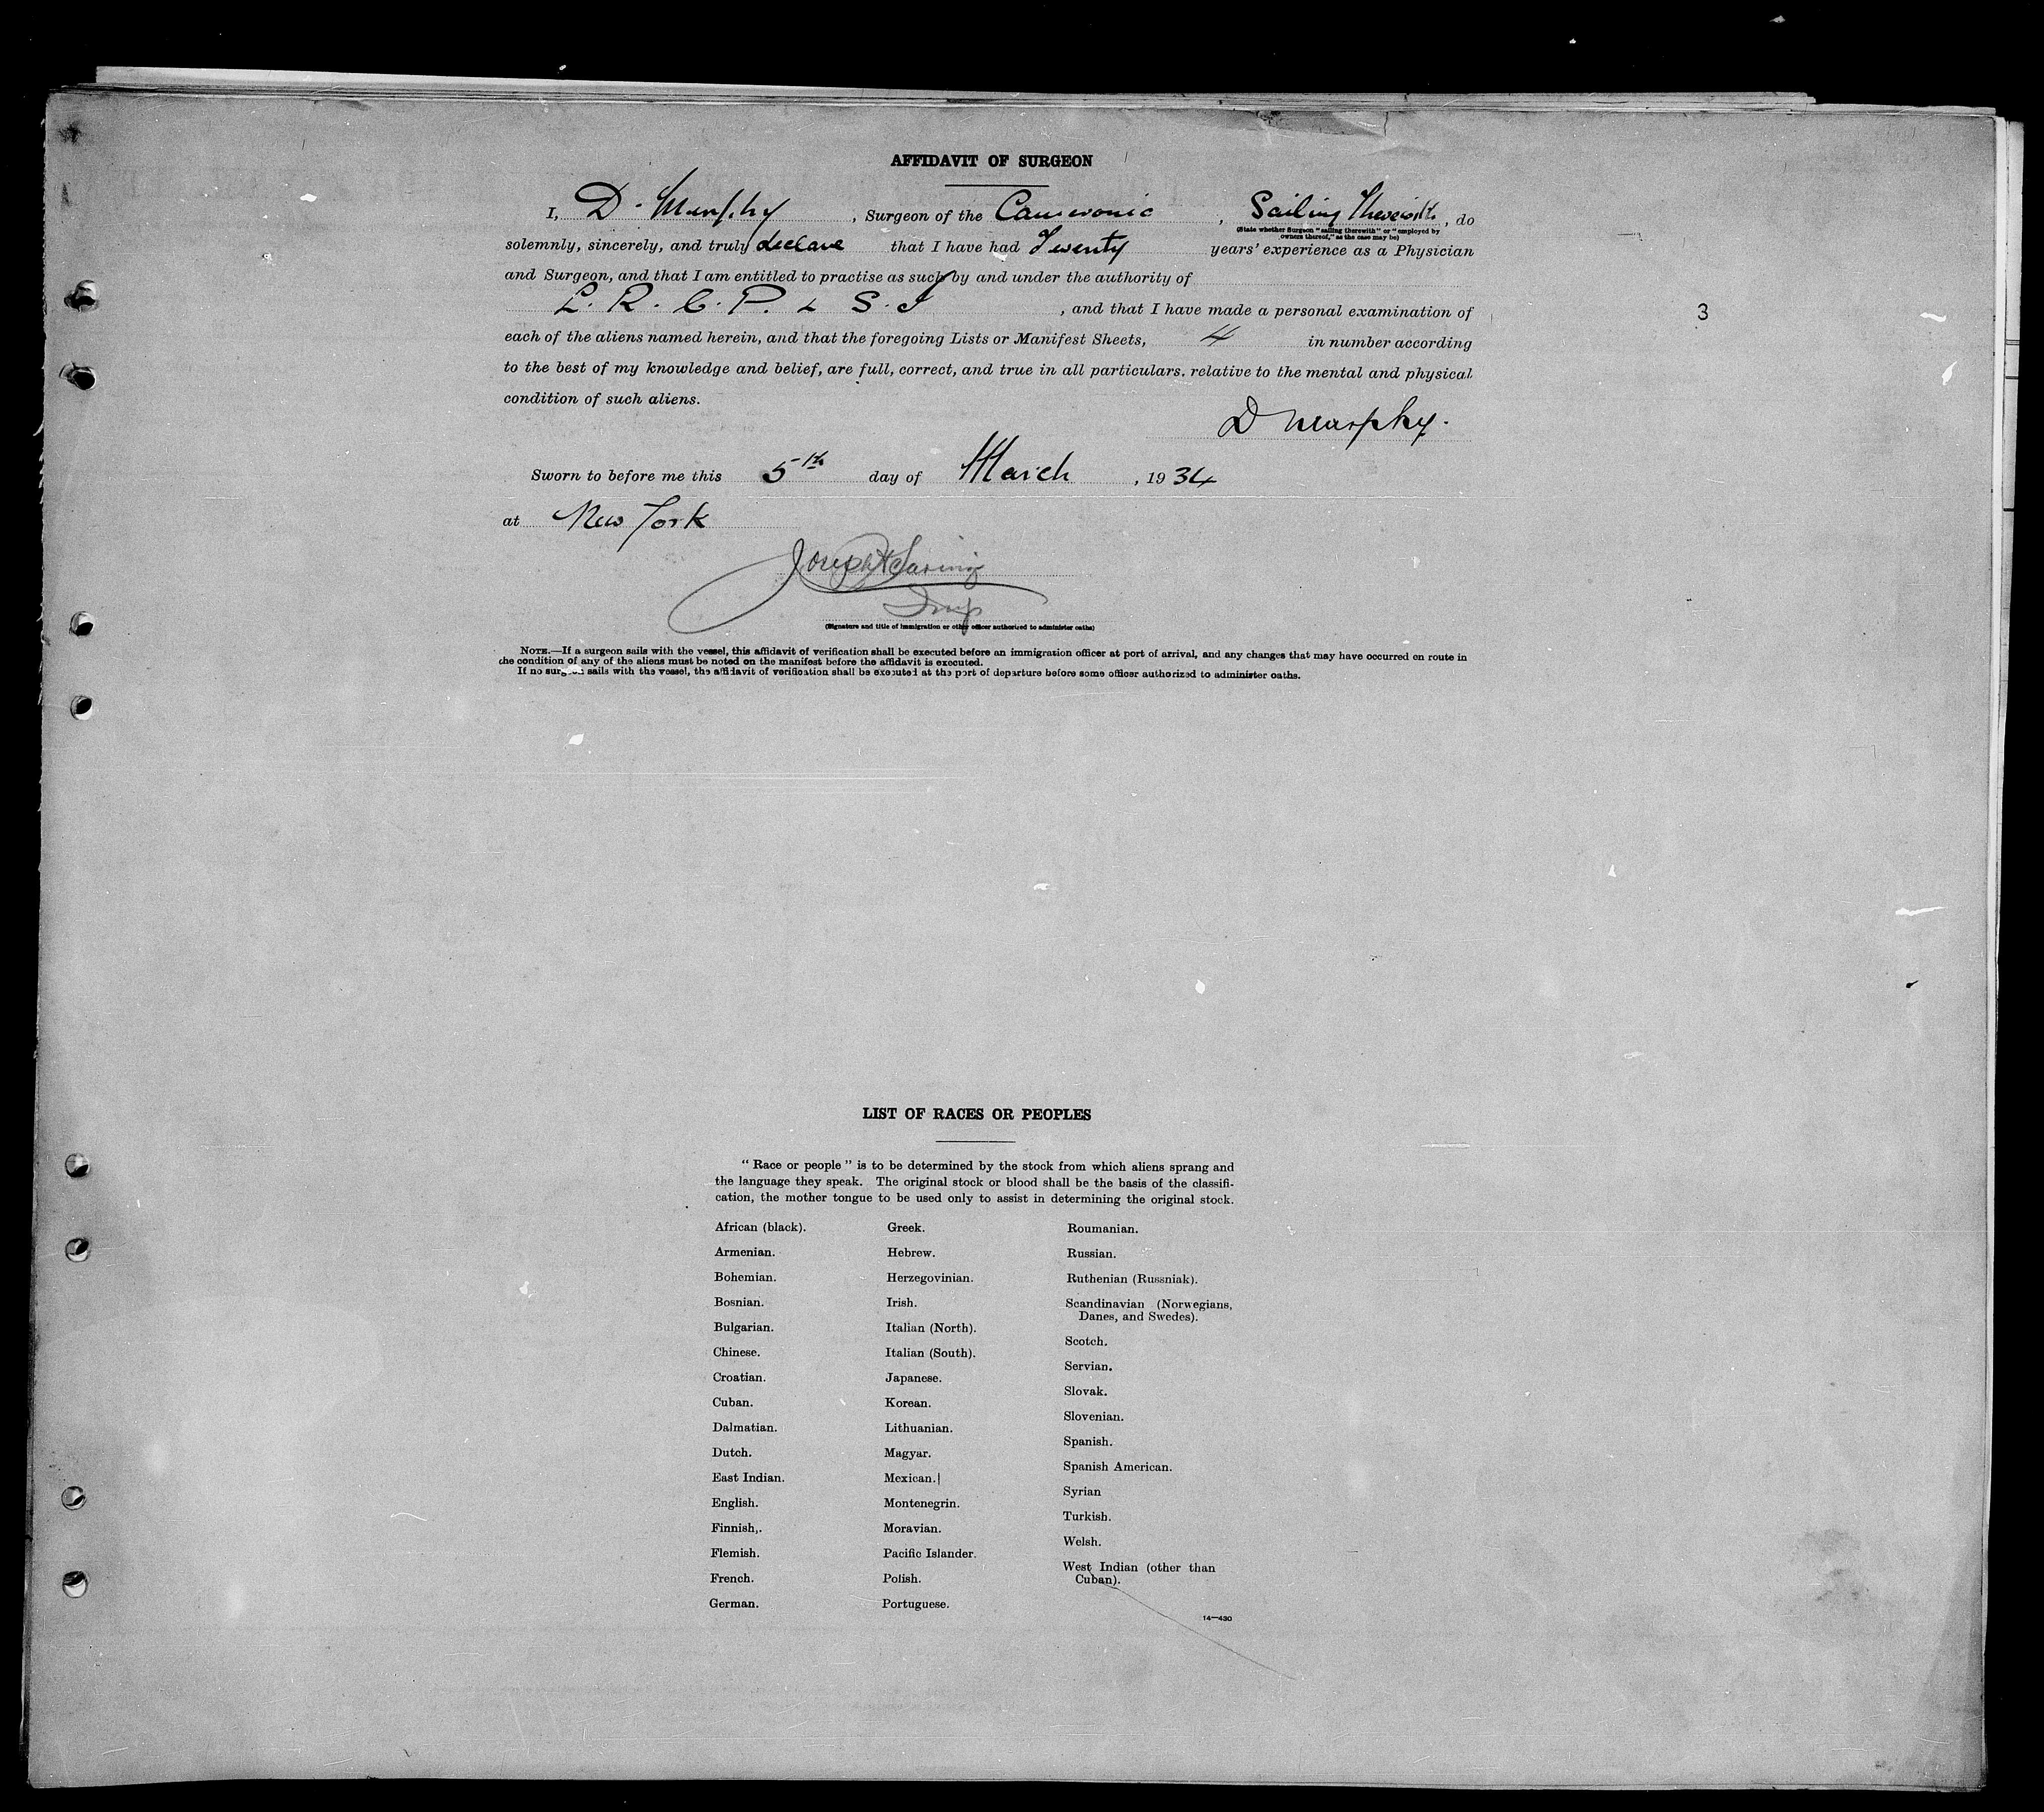 AFFIDAVIT OF SURGEON
I, D. Murphy, Surgeon of the Cameronia, Sailing Therewith, do
(State whether Surgeon "sailing therewith" or "employed by
owners thereof," as the case may be)
solemnly, sincerely, and truly declare that I have had Twenty years' experience as a Physician
and Surgeon, and that I am entitled to practise as such by and under the authority of
L. R. C. P. & S. I, and that I have made a personal examination of
3
each of the aliens named herein, and that the foregoing Lists or Manifest Sheets, 4 in number according
to the best of my knowledge and belief, are full, correct, and true in all particulars, relative to the mental and physical
condition of such aliens.
D Murphy.
Sworn to before me this 5th day of March, 1934
at New York
Joseph
Insp
(Signature and title of immigration or other officer authorized to administer oaths)
NOTE.—If a surgeon sails with the vessel, this affidavit of verification shall be executed before an immigration officer at port of arrival, and any changes that may have occurred en route in
the condition of any of the aliens must be noted on the manifest before the affidavit is executed.
If no surgeon sails with the vessel, the affidavit of verification shall be executed at the port of departure before some officer authorized to administer oaths.
LIST OF RACES OR PEOPLES
"Race or people" is to be determined by the stock from which aliens sprang and
the language they speak. The original stock or blood shall be the basis of the classifi-
cation, the mother tongue to be used only to assist in determining the original stock.
African (black).
Armenian.
Bohemian.
Bosnian.
Bulgarian.
Chinese.
Croatian.
Cuban.
Dalmatian.
Dutch.
East Indian.
English.
Finnish,.
Flemish.
French.
German.
Greek.
Hebrew.
Herzegovinian.
Irish.
Italian (North).
Italian (South).
Japanese.
Korean.
Lithuanian.
Magyar.
Mexican.
Montenegrin.
Moravian.
Pacific Islander.
Polish.
Portuguese.
Roumanian.
Russian.
Ruthenian (Russniak).
Scandinavian (Norwegians,
Danes, and Swedes).
Scotch.
Servian.
Slovak.
Slovenian.
Spanish.
Spanish American.
Syrian
Turkish.
Welsh.
West Indian (other than
Cuban).
14—430